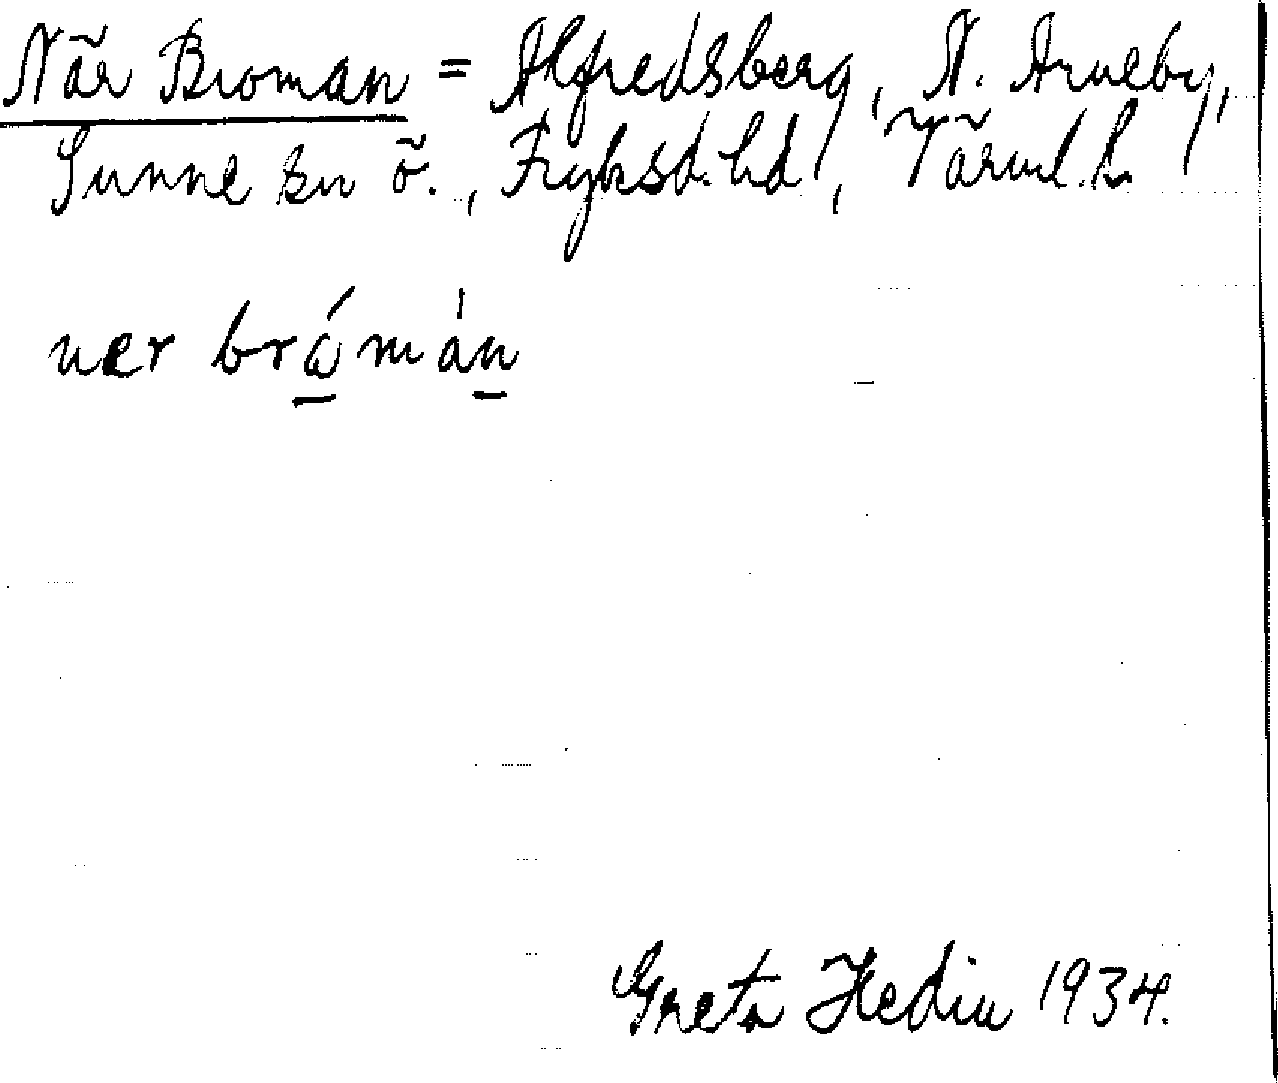 När Broman = Alfredsberg, N. Arneby,
Sunne sn ö., Fryksd. hd, Värml. l.
ner brámán
Greta Hedin 1934.